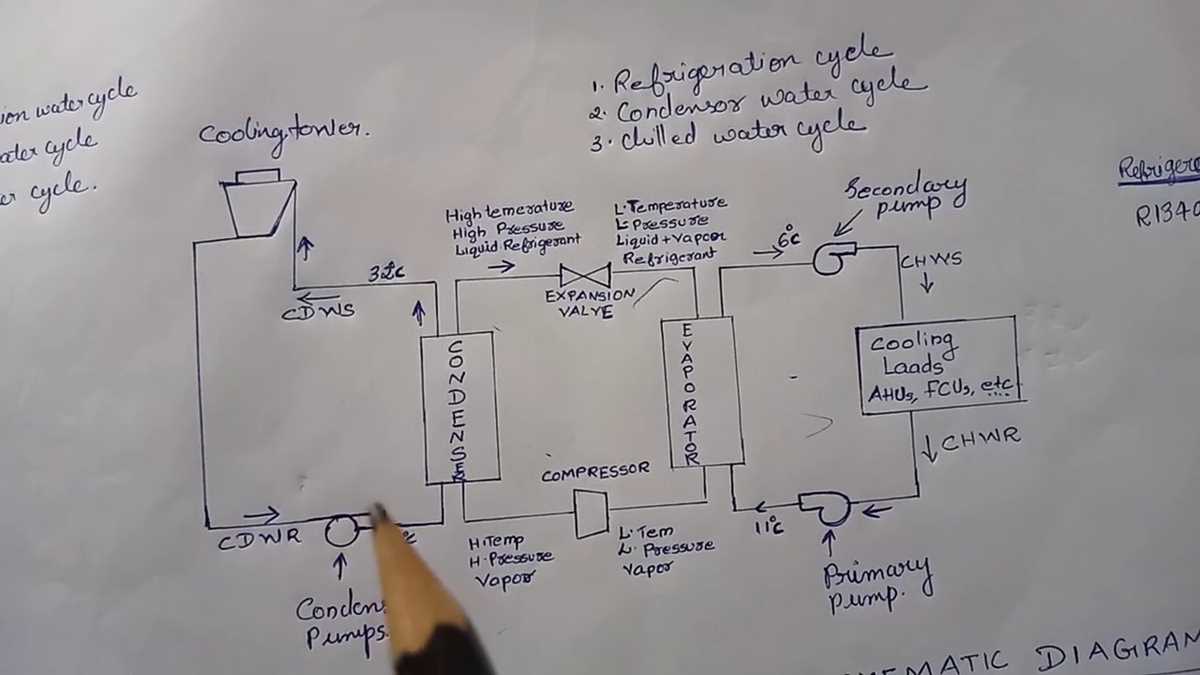 1. Refrigeration cycle
2. Condensor water cycle
3. chilled water cycle
water cycle
cycle
cycle.
Cooling tower.
High temerature
High Pressure
Liquid Refrigerant
L.Temperature
L.Pressure
Liquid+Vapoor
Refrigerant
Secondary
pump
6°c
CHWS
CDWS
EXPANSION
VALVE
CONDENSER
EVAPORATOR
Cooling
Loads
AHUs, FCUs, etc
CHWR
COMPRESSOR
CDWR
H.Temp
H.Pressure
Vapor
L.Tem
L.Pressure
Vapor
11°c
Primary
Pump.
Pumps.
DIAGRAM